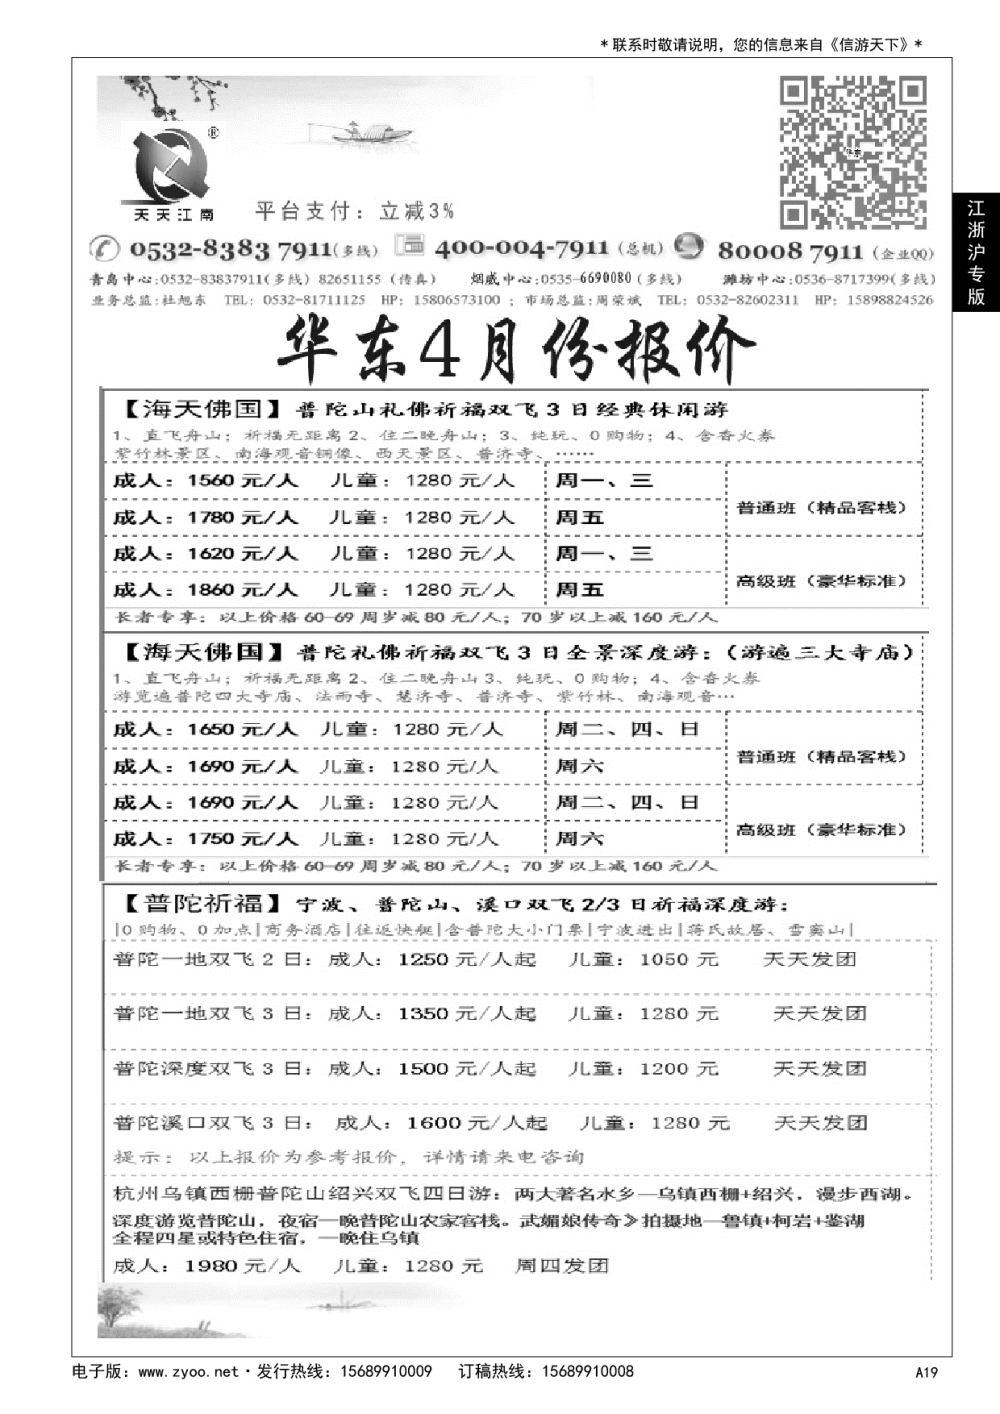 *联系时敬请说明，您的信息来自《信游天下》*
江浙沪专版
®
天天江南
平台支付：立减3%
华东
0532-8383 7911(多线) 400-004-7911 (总机) 80008 7911 (企业QQ)
青岛中心:0532-83837911(多线) 82651155 (传真) 烟威中心:0535-6690080(多线) 潍坊中心:0536-8717399(多线)
业务总监:杜旭东 TEL: 0532-81711125 HP: 15806573100 ; 市场总监:周荣斌 TEL: 0532-82602311 HP: 15898824526
华东4月份报价
【海天佛国】普陀山礼佛祈福双飞3日经典休闲游
1、直飞舟山；祈福无距离2、住二晚舟山；3、纯玩、0购物；4、含香火券
紫竹林景区、南海观音铜像、西天景区、普济寺、……
成人：1560元/人 儿童：1280元/人 周一、三
普通班（精品客栈）
成人：1780元/人 儿童：1280元/人 周五
成人：1620元/人 儿童：1280元/人 周一、三
高级班（豪华标准）
成人：1860元/人 儿童：1280元/人 周五
长者专享：以上价格60-69周岁减80元/人；70岁以上减160元/人
【海天佛国】普陀礼佛祈福双飞3日全景深度游：（游遍三大寺庙）
1、直飞舟山；祈福无距离2、住二晚舟山3、纯玩、0购物；4、含香火券
游览遍普陀四大寺庙、法雨寺、慧济寺、普济寺、紫竹林、南海观音…
成人：1650元/人 儿童：1280元/人 周二、四、日
普通班（精品客栈）
成人：1690元/人 儿童：1280元/人 周六
成人：1690元/人 儿童：1280元/人 周二、四、日
高级班（豪华标准）
成人：1750元/人 儿童：1280元/人 周六
长者专享：以上价格60-69周岁减80元/人；70岁以上减160元/人
【普陀祈福】宁波、普陀山、溪口双飞2/3日祈福深度游：
|0购物、0加点|商务酒店|往返快艇|含普陀大小门票|宁波进出|蒋氏故居、雪窦山|
普陀一地双飞2日：成人：1250元/人起 儿童：1050元 天天发团
普陀一地双飞3日：成人：1350元/人起 儿童：1280元 天天发团
普陀深度双飞3日：成人：1500元/人起 儿童：1200元 天天发团
普陀溪口双飞3日： 成人：1600元/人起 儿童：1280元 天天发团
提示：以上报价为参考报价，详情请来电咨询
杭州乌镇西栅普陀山绍兴双飞四日游：两大著名水乡—乌镇西栅+绍兴，漫步西湖。
深度游览普陀山，夜宿一晚普陀山农家客栈。武媚娘传奇》拍摄地—鲁镇+柯岩+鉴湖
全程四星或特色住宿，一晚住乌镇
成人：1980元/人 儿童：1280元 周四发团
电子版：www.zyoo.net·发行热线：15689910009 订稿热线：15689910008
A19